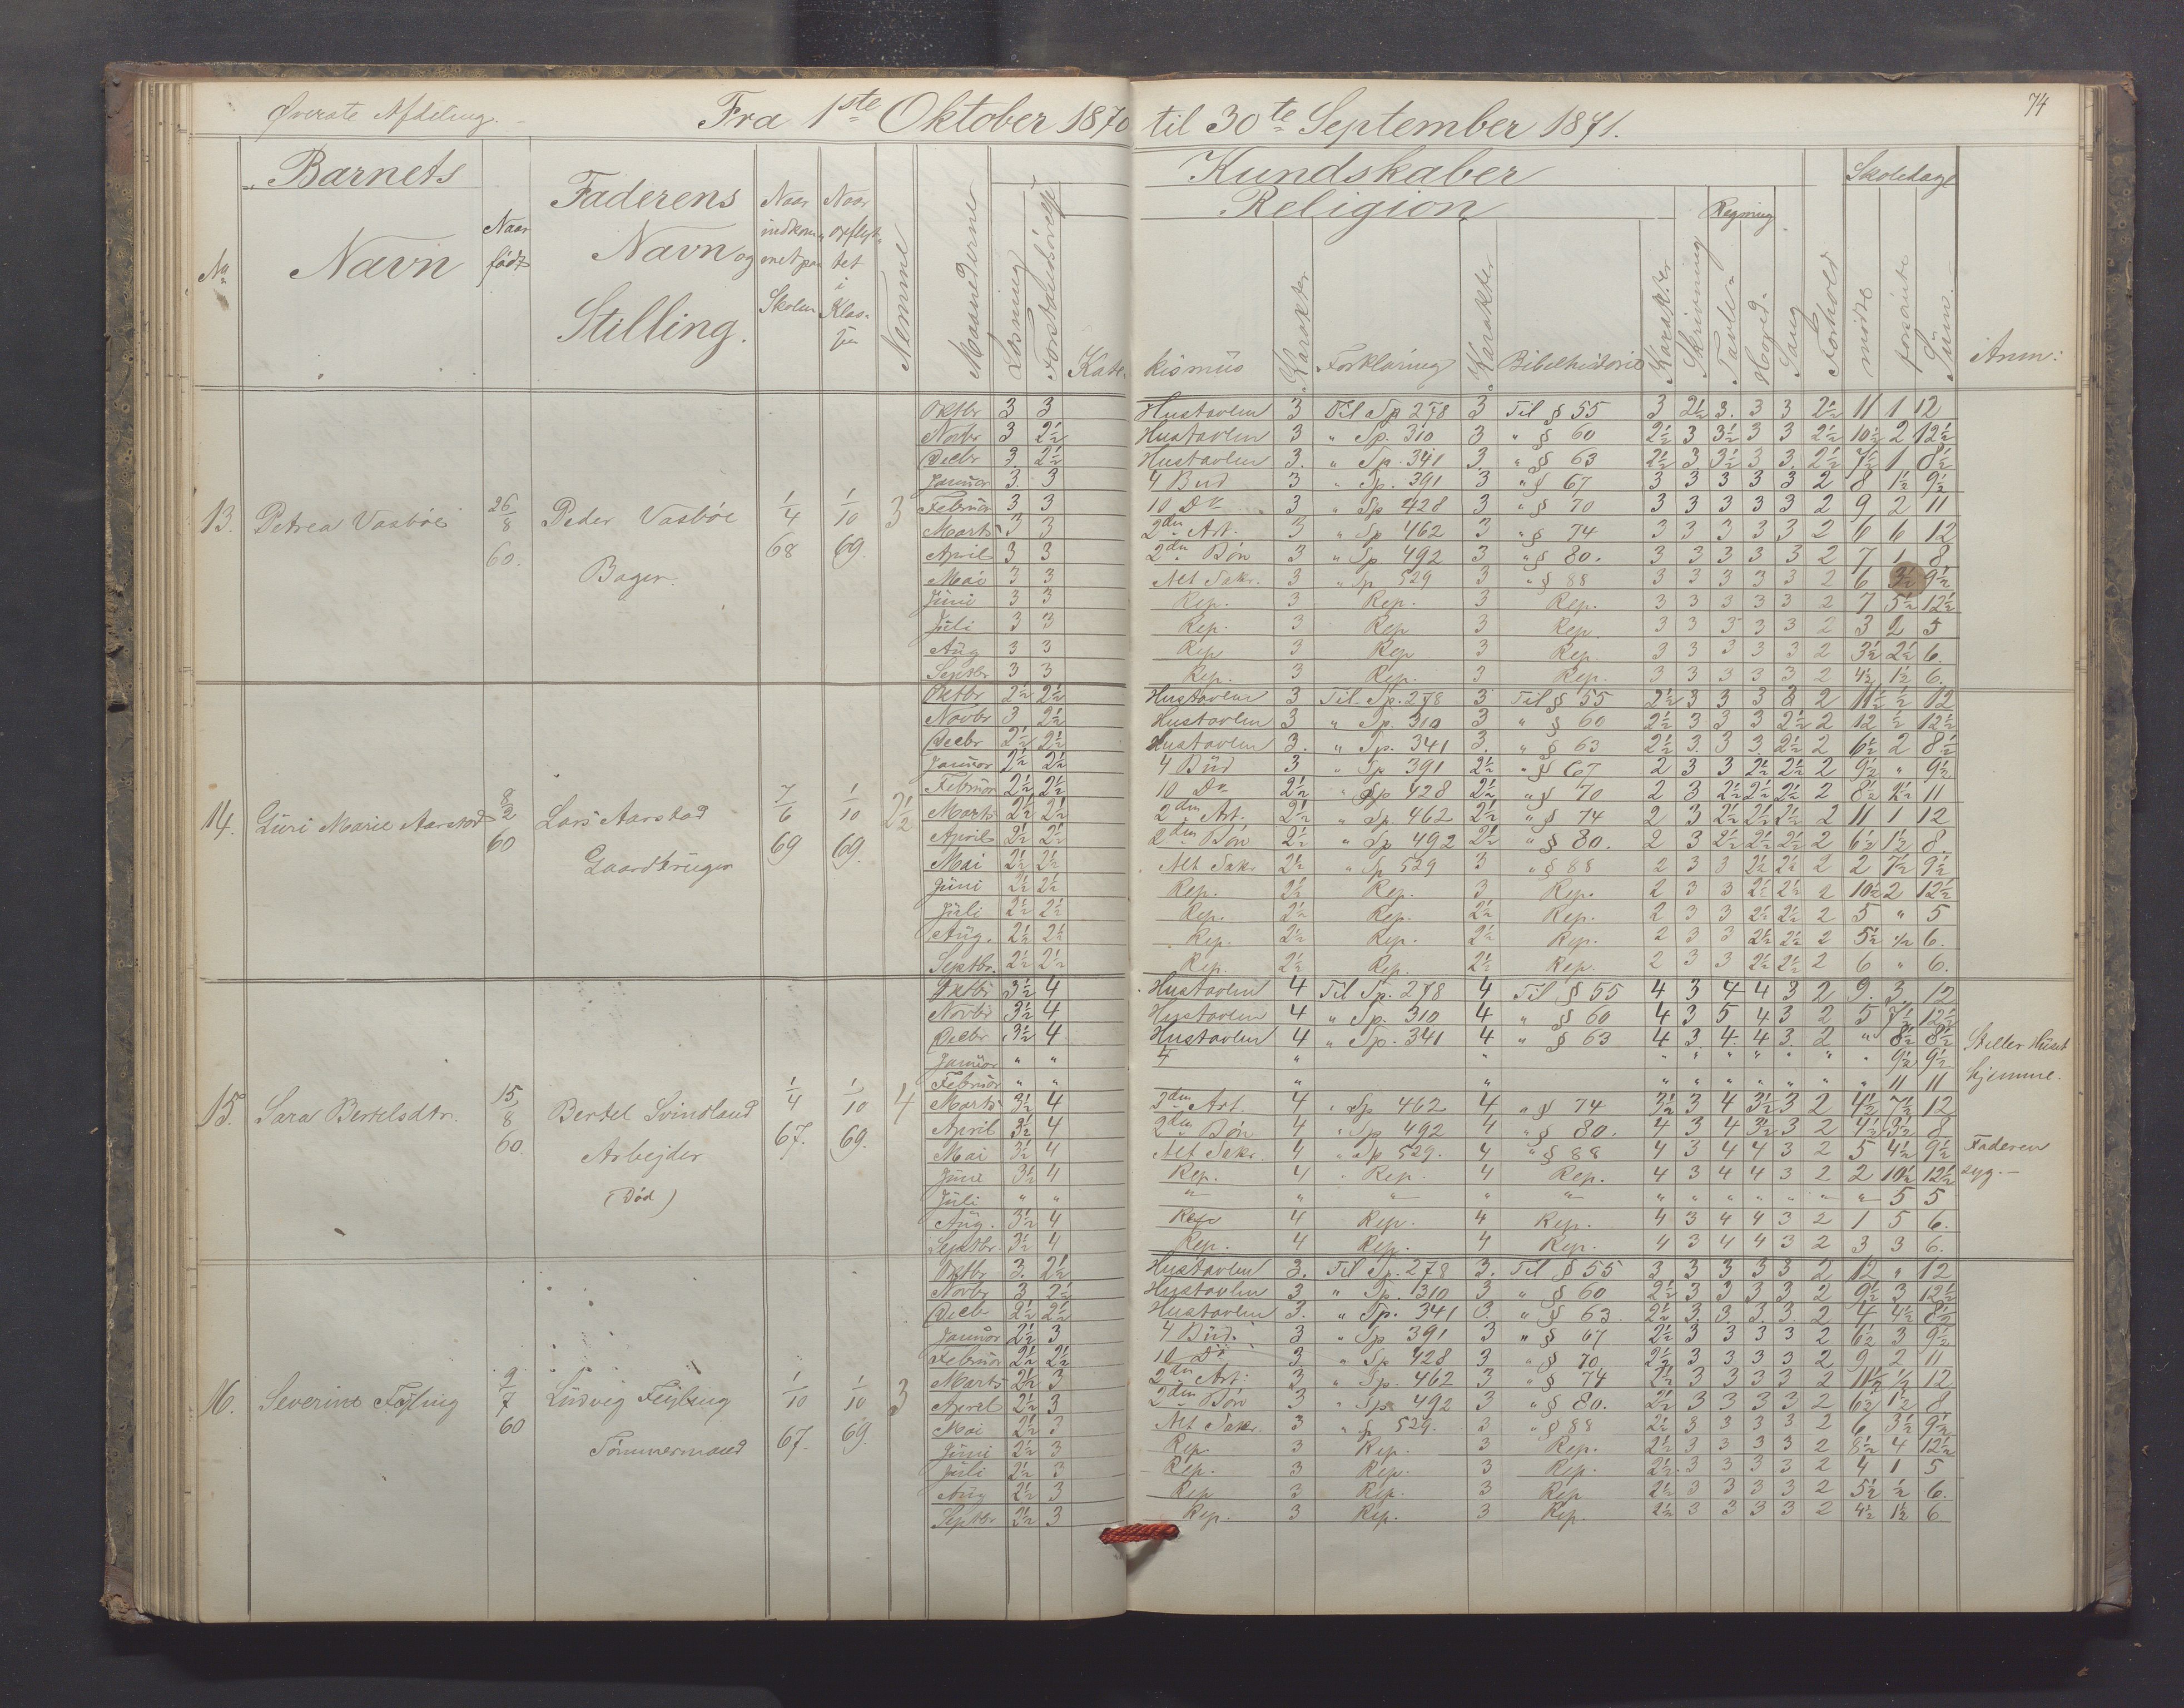 74
Øverste Afdeling.
Fra 1ste Oktober 1870 til 30te September 1871.
No
Barnets Navn
Naar født
Faderens Navn og Stilling.
Naar indkommet paa Skolen
Naar opflyttet i Klassen
Nemme
Maanederne
Læsning
Forstandsøvelse
Kundskaber
Religion
Katekismus
Karakter
Forklaring
Karakter
Bibelhistorie
Karakter
Skrivning
Regning
Tavle-
Hoved-
Sang
Forhold
Skoledage
mødte
forsømte
Sum.
Anm:
13. Petrea Vasbøe 26/8 60. Peder Vasbøe Bager. 1/4 68 1/10 69. 3
Oktbr 3 3 Hustavlen 3 Til Sp 278 3 Til § 55 3 2½ 3. 3 3 2½ 11 1 12
Novbr 3 2½ Hustavlen 3 " Sp. 310 3 " § 60 2½ 3 3½ 3 3 2½ 10½ 2 12½
Decbr 3 2½ Hustavlen 3. " Sp. 341 3. " § 63 2½ 3 3½ 3 3. 2½ 7½ 1 8½
Januar 3. 3 4 Bud 3 " Sp. 391 3 " § 67 3 3 3 3 3 2 8 1½ 9½
Februar 3 3 10 Do 3 " Sp 428 3 " § 70 3 3 3 3 3 2 9 2 11
Marts 3 3 2den Art. 3 " Sp 462 3 " § 74 3 3 3 3 3 2 6 6 12
April 3 3 2den Bøn 3 " Sp 492 3 " § 80. 3 3 3 3 3 2 7 1 8
Mai 3 3 Alt Sakr. 3 " Sp 529 3 " § 88 3 3 3 3 3 2 6 3½ 9½
Juni 3 3 Rep. 3 Rep. 3 Rep. 3 3 3 3 3 2 7 5½ 12½
Juli 3 3 Rep. 3 Rep 3 Rep. 3 3 3 3 3 2 3 2 5
Aug 3 3 Rep 3 Rep 3 Rep. 3 3 3 3 3 2 3½ 2½ 6.
Septbr 3 3 Rep. 3 Rep. 3 Rep. 3 3 3 3 3 2 4½ 1½ 6.
14. Guri Marie Aarstad 8/2 60 Lars Aarstad Gaardbruger 7/6 69 1/10 69. 2½
Oktbr 2½ 2½ Hustavlen 3 Til Sp. 278 3 Til § 55 2½ 3 3 3 3 2 11½ ½ 12
Novbr 3 2½ Hustavlen 3 " Sp. 310 3 " § 60 2½ 3 3 3 2½ 2 12 ½ 12½
Decbr 2½ 2½ Hustavlen 3. " Sp. 341 3. " § 63 2½ 3. 3 3. 2½ 2 6½ 2 8½
Januar 2½ 2½ 4 Bud 3 " Sp 391 2½ " § 67 2 3 3 2½ 2½ 2 9½ " 9½
Februar 2½ 2½ 10 Do 2½ " Sp 428 2½ " § 70 2 3 2½ 2½ 2½ 2 8½ 2½ 11
Marts 2½ 2½ 2den Art. 2½ " Sp. 462 2½ " § 74 2 3 2½ 2½ 2½ 2 11 1 12
April 2½ 2½ 2den Bøn 2½ " Sp 492 2½ " § 80. 2 3 2½ 2½ 2½ 2 6½ 1½ 8.
Mai 2½ 2½ Alt Sakr 2½ " Sp 529 3 " § 88 2 3 3 2½ 2½ 2 2 7½ 9½
Juni 2½ 2½ Rep. 2½ Rep. 3 Rep. 2 3 3 2½ 2½ 2 10½ 2 12½
Juli 2½ 2½ Rep. 2½ Rep. 2½ Rep. 2 3 3 2½ 2½ 2 5 " 5
Aug. 2½ 2½ Rep. 2½ Rep. 2½ Rep. 2 3 3 2½ 2½ 2 5½ ½ 6.
Septbr. 2½ 2½ Rep. 2½ Rep. 2½ Rep. 2 3 3 2½ 2½ 2 6 " 6.
15. Sara Bertelsdtr. 15/8 60. Bertel Svindland Arbejder (død) 1/4 67. 1/10 69. 4
Oktbr 3½ 4 Hustavlen 4 Til Sp. 278 4 Til § 55 4 3 4 4 3 2 9. 3 12
Novbr 3½ 4 Hustavlen 4 " Sp. 310 4 " § 60 4 3 5 4 3 2 5 7½ 12½
Decbr 3½ 4 Hustavlen 4 " Sp. 341 4 " § 63 4 3 4. 4 3. 2 " 8½ 8½ Steller Huset hjemme.
Januar " " 4 " " " " " " " " " 9½ 9½
Februar " " " " " " " " " " " 11 11
Marts 3½ 4 2den Art. 4 " Sp 462 4 " § 74 3½ 3 4 3½ 3 2 4½ 7½ 12
April 3½ 4 2den Bøn 4 " Sp 492 4 " § 80. 4 3 4 3½ 3 2 4½ 3½ 8
Mai 3½ 4 Alt Sakr 4 " Sp 529. 4 " § 88 4 3 4 4 3 2 5 4½ 9½ Faderen syg.
Juni 3½ 4 Rep. 4 " Rep. 4 Rep. 4 3 4 4 3 2 2 10½ 12½
Juli " " " " " " " " " " " " " " 5 5
Aug. 3½ 4 Rep 4 Rep. 4 Rep. 4 3 4 4 3 2 1 5 6.
Septbr. 3½ 4 Rep. 4 Rep. 4 Rep. 4 3 4 4 3 2 3 3 6.
16. Severine Fejling 9/7 60 Ludvig Fejling Tømmermand 1/10 67. 1/10 69. 3
Oktbr 3. 2½ Hustavlen 3. Til Sp. 278 3. Til § 55 3 3 3 3 3 2 12 " 12
Novbr 3 2½ Hustavlen 3 " Sp. 310 3 " § 60 2½ 3 3 3 3 2 9½ 3 12½
Decbr 2½ 2½ Hustavlen 3. " Sp. 341 3. " § 63. 2½ 3. 3. 3. 3. 2 4 4½ 8½
Januar 2½ 3 4 Bud. 3 " Sp 391 3 " § 67 2½ 3 3 3 3 2 6½ 3 9½
Februar 2½ 2½ 10 Do 3 " Sp 428 3 " § 70 2½ 3 3 3 3 2 9 2 11
Marts 2½ 3 2den Art. 3 " Sp. 462 3 " § 74 2½ 3 3 3 3 2 11½ ½ 12
April 2½ 3 2den Bøn 3 " Sp 492 3 " § 80. 2½ 3 3 3 3 2 6½ 1½ 8
Mai 2½ 3 Alt Sakr. 3 " Sp 529. 3 " § 88 2½ 3 3 3 3 2 6 3½ 9½
Juni 2½ 3 Rep 3 Rep. 3 Rep. 2½ 3 3 3 3 2 8½ 4 12½
Juli 2½ 3 Rep. 3 Rep. 3 Rep. 2½ 3 3 3 3 2 4 1 5
Aug 2½ 3 Rep 3 Rep. 3 Rep 2½ 3 3 3 3 2 5½ ½ 6.
Septbr 2½ 3 Rep. 3 Rep. 3 Rep. 2½ 3 3 3 3 2 4½ 1½ 6